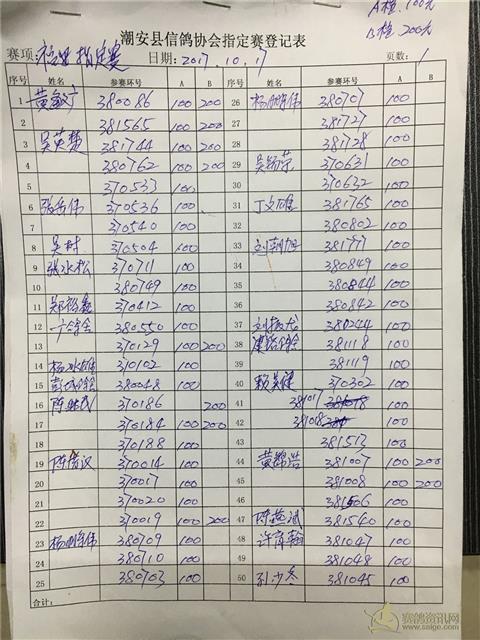 A档：100元
B档 200元
潮安县信鸽协会指定赛登记表
赛项: 指定赛 日期: 2017.10.17 页数: 1
序号 姓名 参赛环号 A B 序号 姓名 参赛环号 A B
1 380086 100 200 26 杨鹏伟 380707 100
2 381565 100 200 27 381727 100
3 吴英楚 381744 100 200 28 381728 100
4 380762 100 200 29 370631 100
5 370533 100 30 370632 100
6 370536 100 31 丁文雄 381765 100
7 370540 100 32 380802 100
8 吴村 370504 100 33 刘朝旭 381777 100
9 张冰松 370711 100 34 380849 100
10 380749 100 35 380844 100
11 370412 100 36 380842 100
12 380550 100 37 380244 100
13 370129 100 200 38 381118 100
14 杨冰雄 370102 100 39 381119 100
15 380048 100 40 370302 100
16 370186 200 41 381017 100
17 370184 100 200 42 381018 100
18 370188 100 43 381513 100
19 370014 100 44 381007 100 200
20 370017 100 45 381008 100 200
21 370020 100 46 381506 100
22 370019 100 200 47 381540 100
23 杨鹏伟 380709 100 48 381047 100
24 380710 100 49 381048 100
25 380703 100 50 孙少冬 381045 100
合计:
赛鸽资讯网
www.saige.com